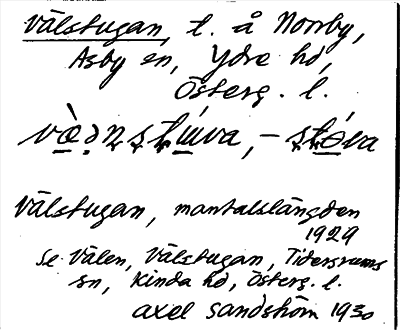 Välstugan, t. å Norrby,
Asby sn, Ydre hd,
Österg. l.
væ̀ənstu̇́va, – stó̤va
Välstugan, mantalslängden
1929
Se Välen, Välstugan, Tidersrums
sn, Kinda hd, Österg. l.
Axel Sandström 1930